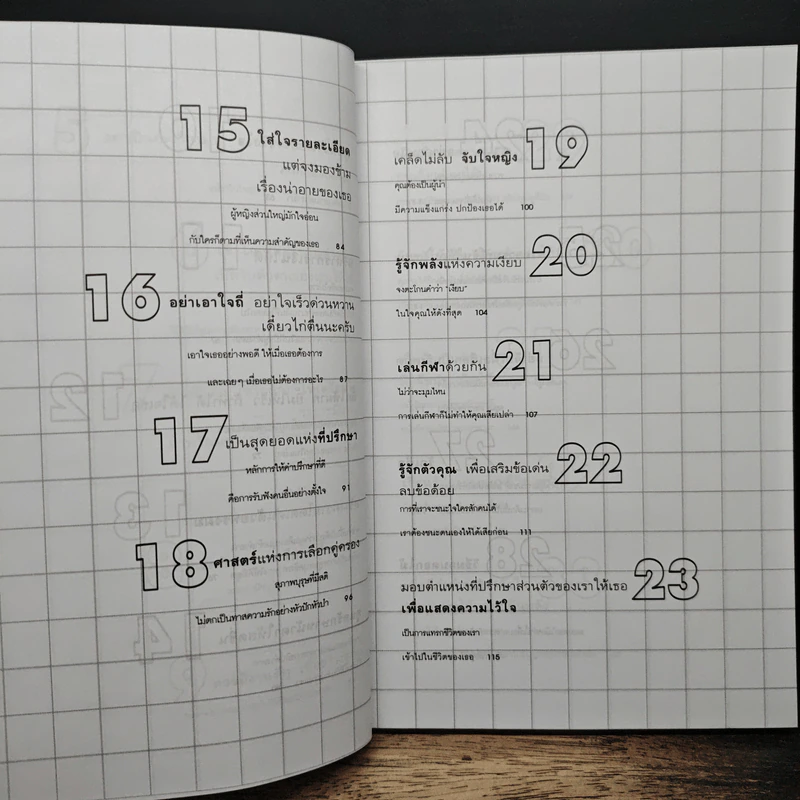 15 ใส่ใจรายละเอียด
แต่จงมองข้าม
เรื่องน่าอายของเธอ
ผู้หญิงส่วนใหญ่มักใจอ่อน
กับใครก็ตามที่เห็นความสำคัญของเธอ 84
16 อย่าเอาใจถี่ อย่าใจเร็วด่วนหวาน
เดี๋ยวไก่ตื่นนะครับ
เอาใจเธออย่างพอดี ให้เมื่อเธอต้องการ
และเฉยๆ เมื่อเธอไม่ต้องการอะไร 87
17 เป็นสุดยอดแห่งที่ปรึกษา
หลักการให้คำปรึกษาที่ดี
คือการรับฟังคนอื่นอย่างตั้งใจ 91
18 ศาสตร์แห่งการเลือกคู่ครอง
สุภาพบุรุษที่มีสติ
ไม่ตกเป็นทาสความรักอย่างหัวปักหัวปำ 96
เคล็ดไม่ลับ จับใจหญิง 19
คุณต้องเป็นผู้นำ
มีความแข็งแกร่ง ปกป้องเธอได้ 100
รู้จักพลังแห่งความเงียบ 20
จงตะโกนคำว่า "เงียบ"
ในใจคุณให้ดังที่สุด 104
เล่นกีฬาด้วยกัน 21
ไม่ว่าจะมุมไหน
การเล่นกีฬาก็ไม่ทำให้คุณเสียเปล่า 107
รู้จักตัวคุณ เพื่อเสริมข้อเด่น 22
ลบข้อด้อย
การที่เราจะชนะใจใครสักคนได้
เราต้องชนะตนเองให้ได้เสียก่อน 111
มอบตำแหน่งที่ปรึกษาส่วนตัวของเราให้เธอ 23
เพื่อแสดงความไว้ใจ
เป็นการแทรกชีวิตของเรา
เข้าไปในชีวิตของเธอ 115